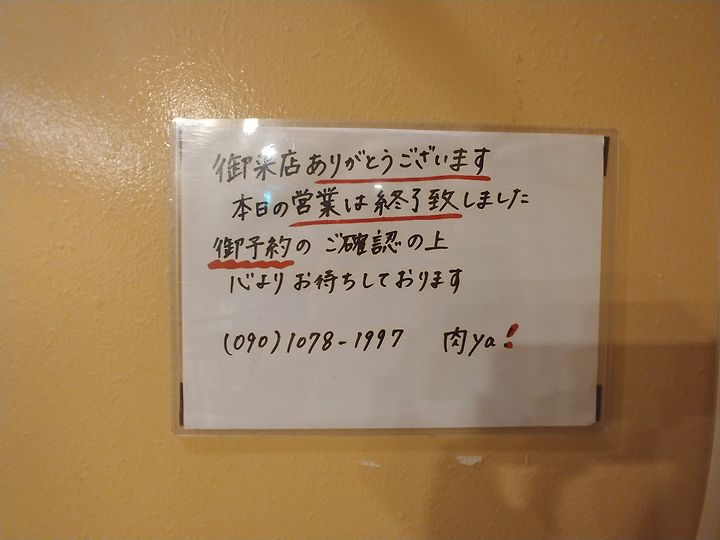 御来店ありがとうございます
本日の営業は終了致しました
御予約のご確認の上
心よりお待ちしております
(090)1078-1997 肉ya!